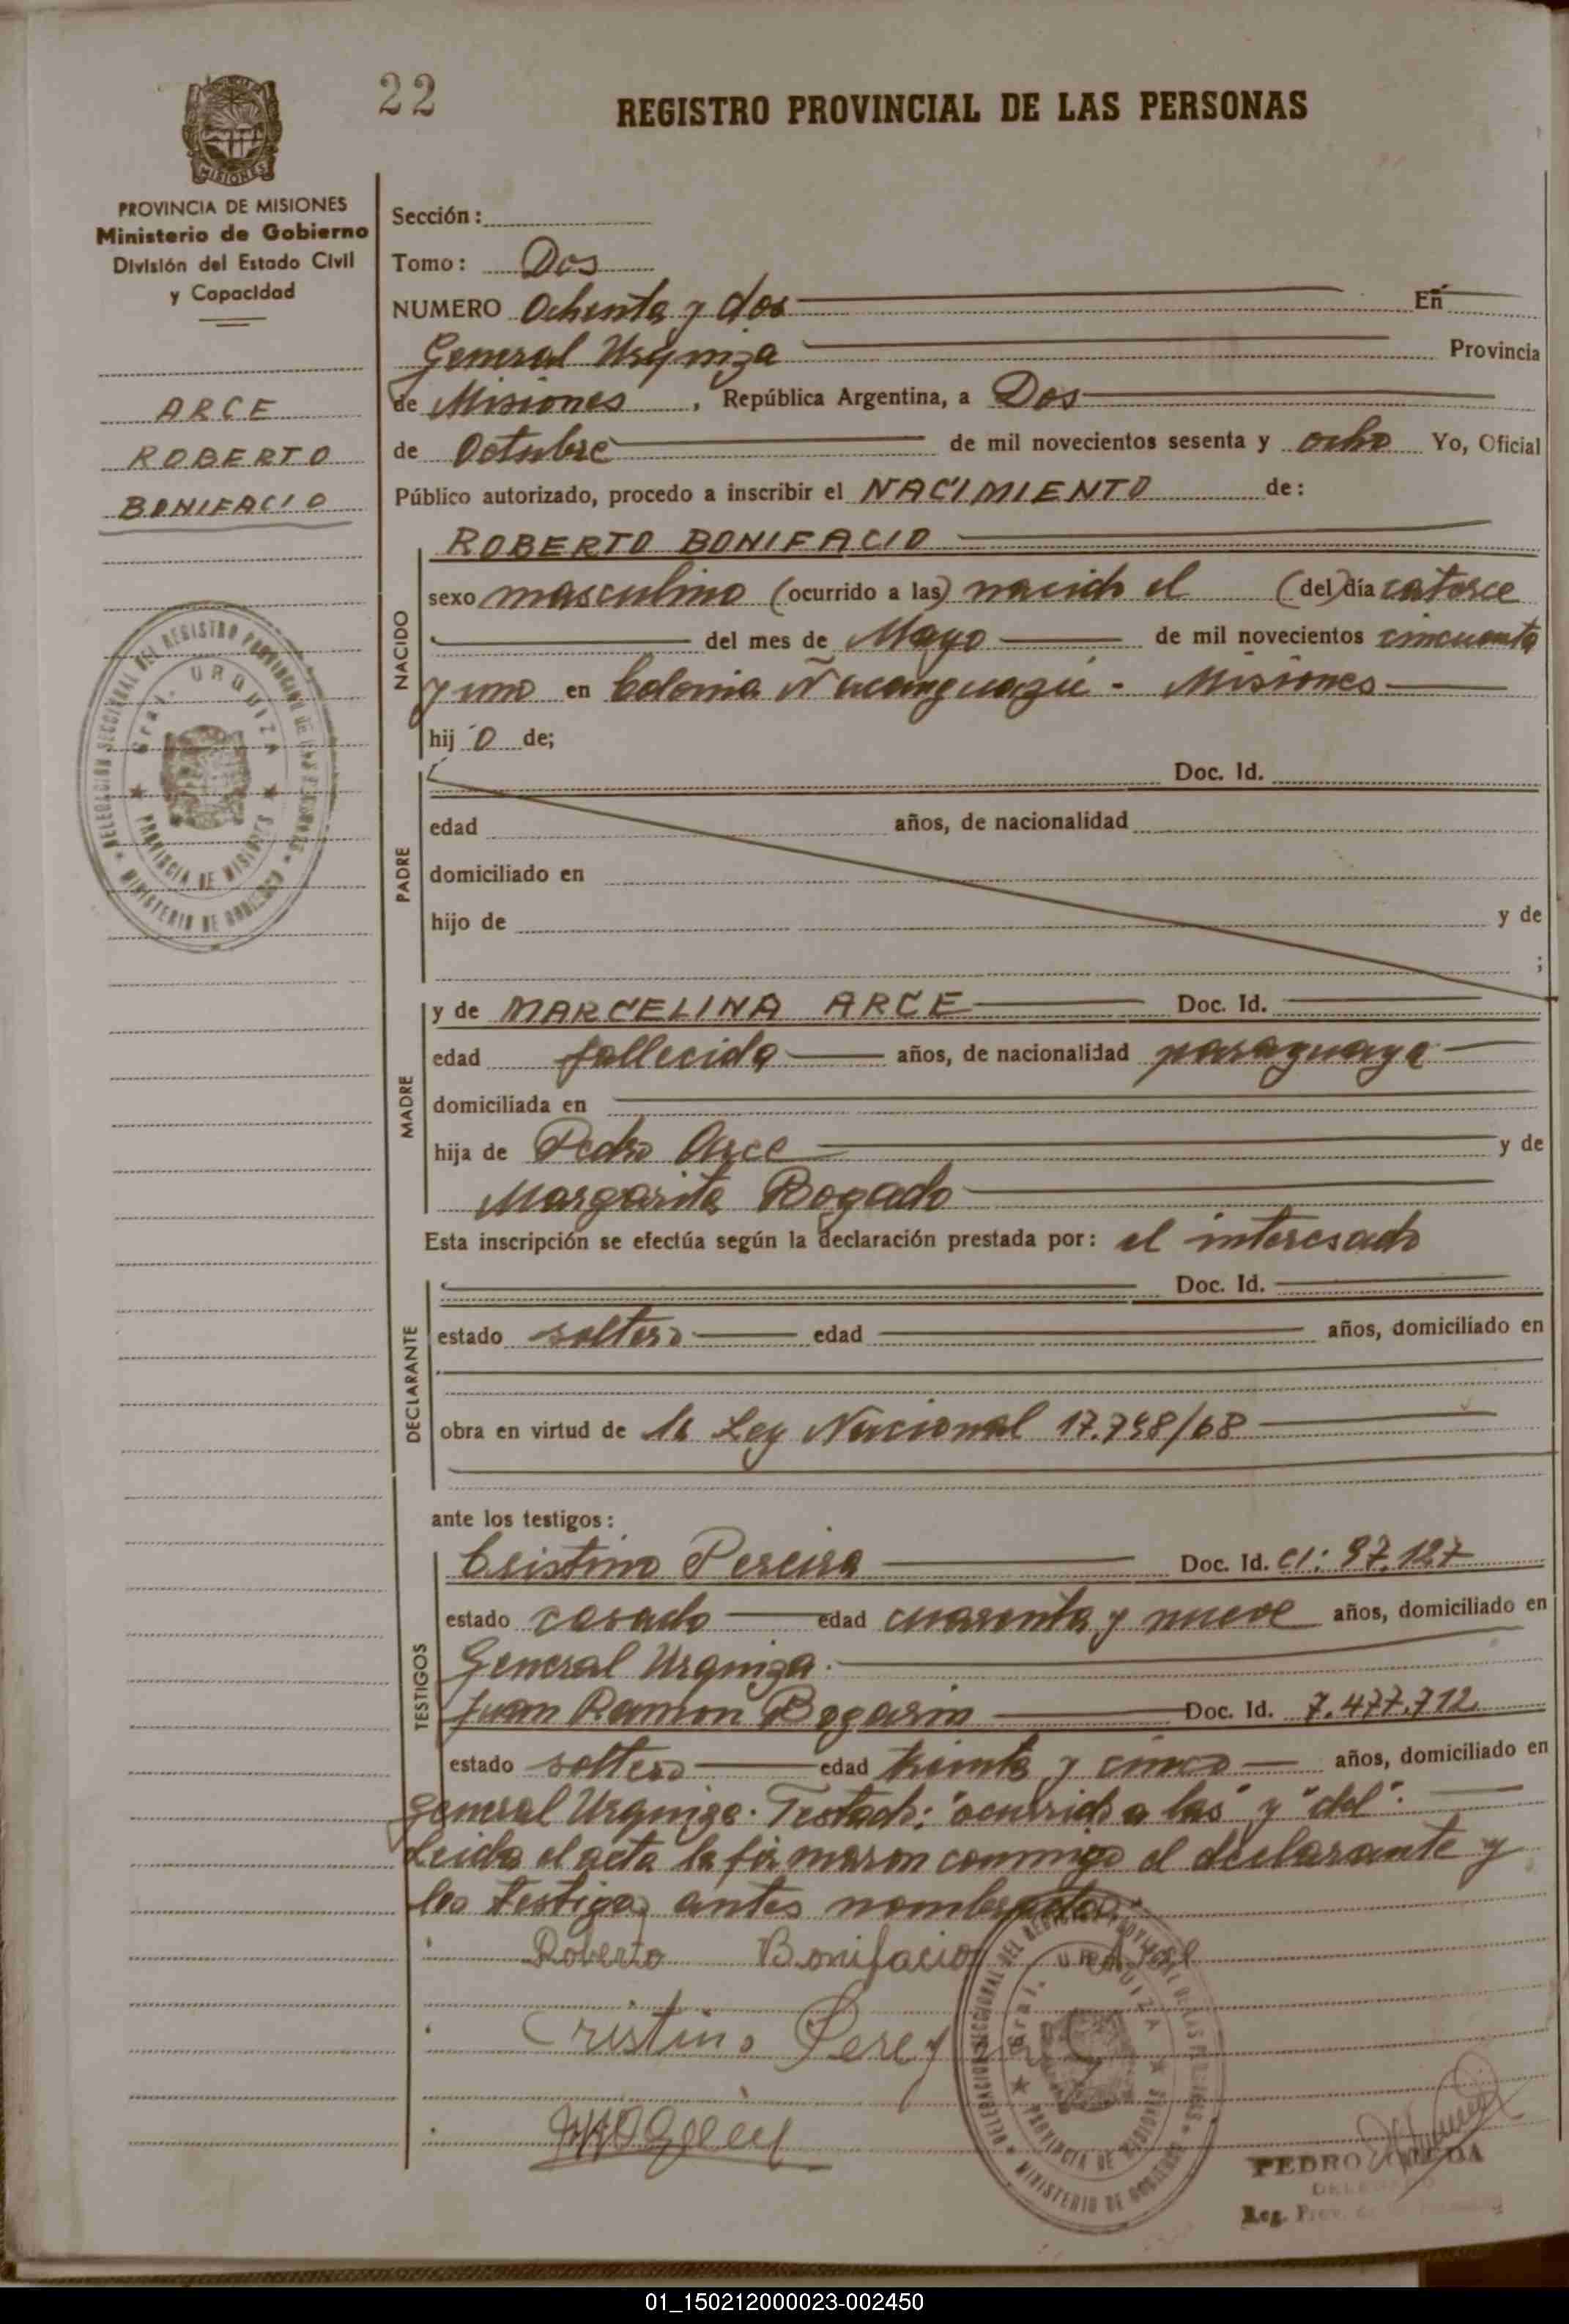 22
REGISTRO PROVINCIAL DE LAS PERSONAS
MISIONES
PROVINCIA DE MISIONES
Ministerio de Gobierno
División del Estado Civil
y Capacidad
ARCE
ROBERTO
BONIFACIO
DELEGACION SECCIONAL DEL REGISTRO PROVINCIAL DE LAS PERSONAS
Gral. URQUIZA
PROVINCIA DE MISIONES
MINISTERIO DE GOBIERNO
Sección:
Tomo: Dos
NUMERO Ochenta y dos En
General Urquiza Provincia
de Misiones, República Argentina, a Dos
de Octubre de mil novecientos sesenta y ocho Yo, Oficial
Público autorizado, procedo a inscribir el NACIMIENTO de:
NACIDO
ROBERTO BONIFACIO
sexo masculino (ocurrido a las) nacido el (del) día catorce
del mes de Mayo de mil novecientos cincuenta
y uno en Colonia Ñacanguazú - Misiones
hij o de;
PADRE
Doc. Id.
edad años, de nacionalidad
domiciliado en
hijo de y de
;
MADRE
y de MARCELINA ARCE Doc. Id.
edad fallecida años, de nacionalidad paraguaya
domiciliada en
hija de Pedro Arce y de
Margarita Bogado
Esta inscripción se efectúa según la declaración prestada por: el interesado
DECLARANTE
Doc. Id.
estado soltero edad años, domiciliado en
obra en virtud de la Ley Nacional 17.798/68
ante los testigos:
TESTIGOS
Cristino Pereira Doc. Id. CI: 97.127
estado casado edad cuarenta y nueve años, domiciliado en
General Urquiza.
Juan Ramon Bogarin Doc. Id. 7.477.712
estado soltero edad treinta y cinco años, domiciliado en
General Urquiza. Testado: "ocurrido a las" y "del".
Leida el acta la firmaron conmigo el declarante y
los testigos antes nombrados.
Roberto Bonifacio Arce
Cristino Pereyra
DELEGACION SECCIONAL DEL REGISTRO PROVINCIAL DE LAS PERSONAS
Gral. URQUIZA
PROVINCIA DE MISIONES
MINISTERIO DE GOBIERNO
PEDRO
Reg. Prov. de
01_150212000023-002450